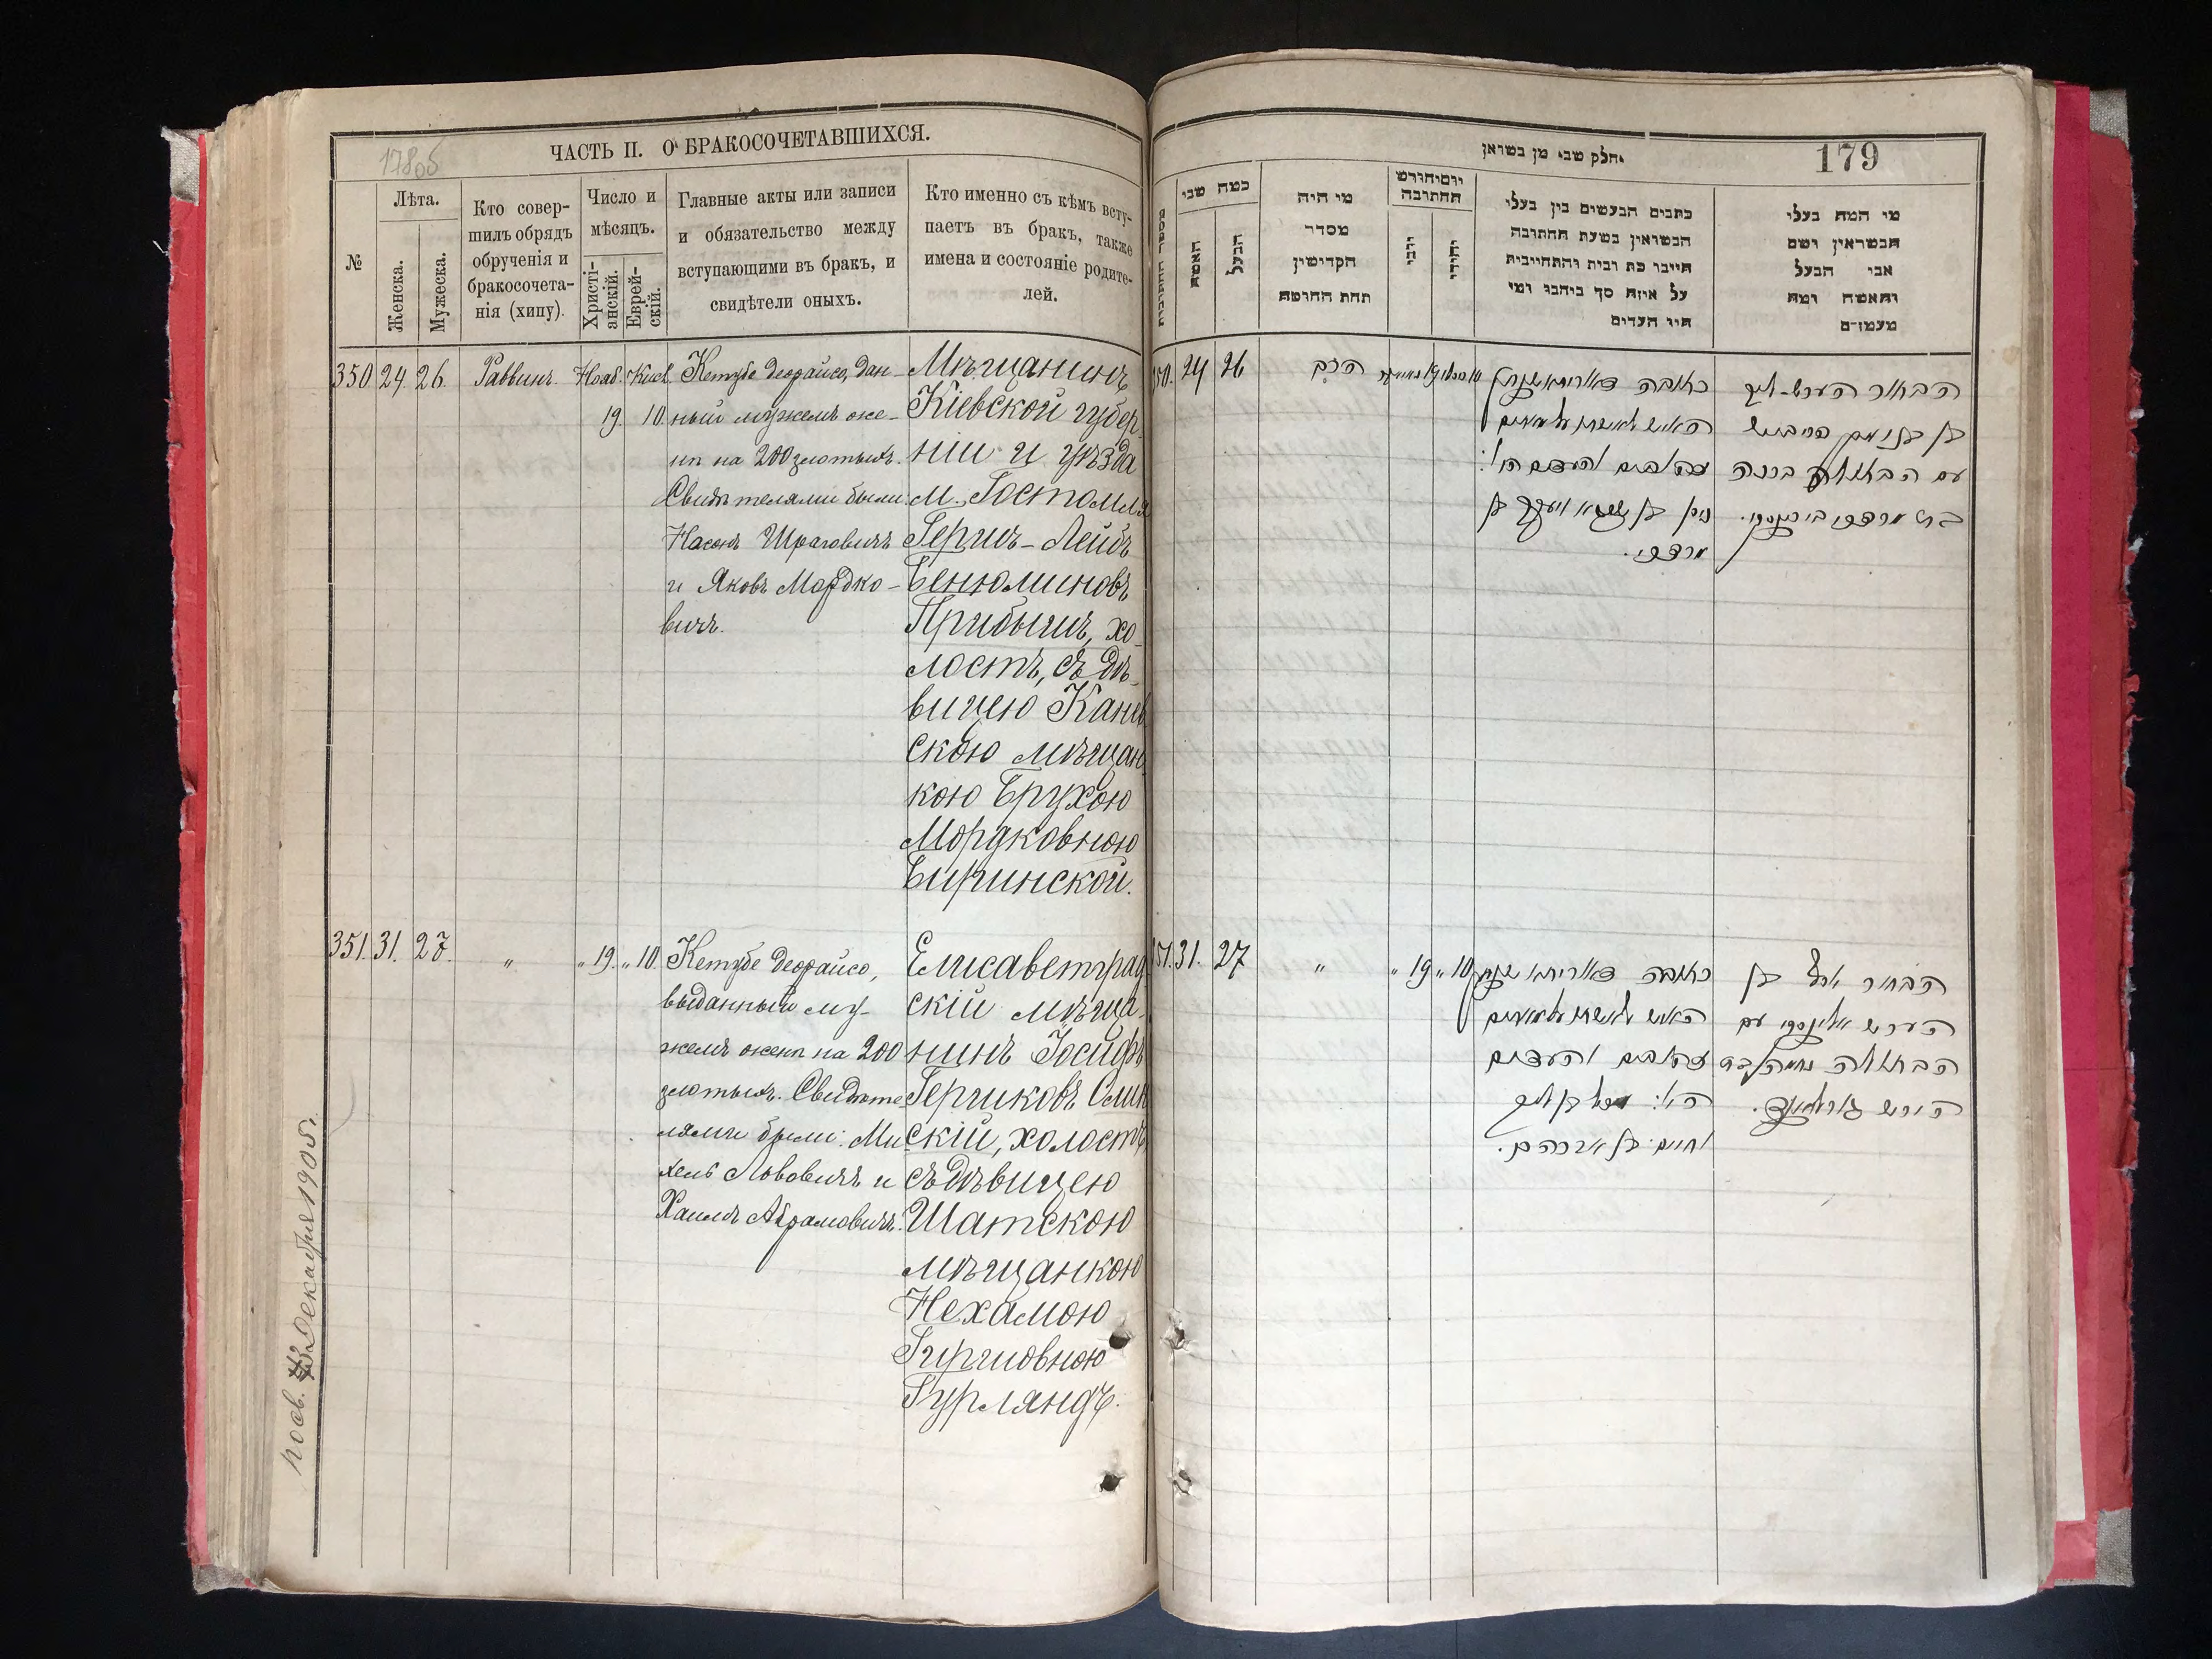 178об
ЧАСТЬ II. О БРАКОСОЧЕТАВШИХСЯ.
№
Лѣта.
Женска.
Мужеска.
Кто совер-
шилъ обрядъ
обрученія и
бракосочета-
нія (хипу).
Число и
мѣсяцъ.
Христі-
анскій.
Еврей-
скій.
Главные акты или записи
и обязательство между
вступающими въ бракъ, и
свидѣтели оныхъ.
Кто именно съ кѣмъ всту-
паетъ въ бракъ, также
имена и состояніе родите-
лей.
350 24. 26. Раввинъ. Нояб. Кисл.
19. 10.
Кетубе деорайсо, дан-
ный мужемъ же-
нѣ на 200 злотыхъ.
Свидѣтелями были:
Насонъ Шраговичъ
и Яковъ Мордко-
вичъ.
Мѣщанинъ
Кіевской губер-
ніи и уѣзда
м. Гостомля
Гершъ-Лейбъ
Бенюминовъ
Прибышъ, хо-
лостъ, съ дѣ-
вицею Канев
скою мѣщан
кою Брухою
Мордковною
Биринской.
351. 31. 27. " " 19. " 10.
Кетубе деорайсо,
выданный му-
жемъ женѣ на 200
злотыхъ. Свидѣте
лями были: Ми
хель Лововичъ и
Хаимъ Абрамовичъ.
Елисаветград
скій мѣща-
нинъ Іосифъ
Гершковъ Олин
скій, холостъ
съ дѣвицею
Шатскою
мѣщанкою
Нехамою
Гиршовною
Гурляндъ.
посв. 3 Декабря 1905 г.
חלק שני מן בשראן
179
כמה שני
האשה
הבעל
מי היה
מסדר
הקדישין
תחת החופה
יום וחודש
החתונה
נוצרי
יהודי
כתבים הנעשים בין בעלי
הנשואין בשעת החתונה
חיובי כת ובית והתחייבות
על איזה סך ביניהם ומי
היו העדים
מי המה בעלי
הנשואין ושם
אבי הבעל
והאשה ומה
מעמדם
350. 24 26 הרב
כתובה דאורייתא שנתן
האיש לאשתו על מאתים
זהובים והעדים היו:
נתן בן שרגא ויעקב בן
מרדכי.
הבחור הערש-ליב
בן בנימין פריבוש
עם הבתולה ברכה
בת מרדכי בירינסקי.
351. 31. 27 " " 19 " 10
כתובה דאורייתא שנתן
האיש לאשתו על מאתים
זהובים והעדים
היו: מיכל בן ליב
וחיים בן אברהם.
הבחור יוסף בן
הערש אלינסקי עם
הבתולה נחמה בת
הירש גורלאנד.